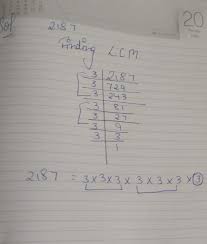 Sol
2187
Finding LCM
3 2187
3 729
3 243
3 81
3 27
3 9
3 3
1
2187 = 3×3×3×3×3×3×3
20